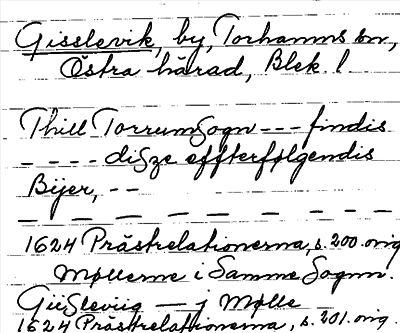 Gisslevik, by, Torhamns sn,
Östra härad, Blek. l.
Thill Torrum Sogn --- findis
- - - - disze effterfølgendis
Bijer, --
— — — — — — — — —
1624 Prästrelationerna, s. 200. orig
Møllerne i Samme Sogn.
Gisleviig — j Mølle
1624 Prästrelationerna, s. 201. orig.